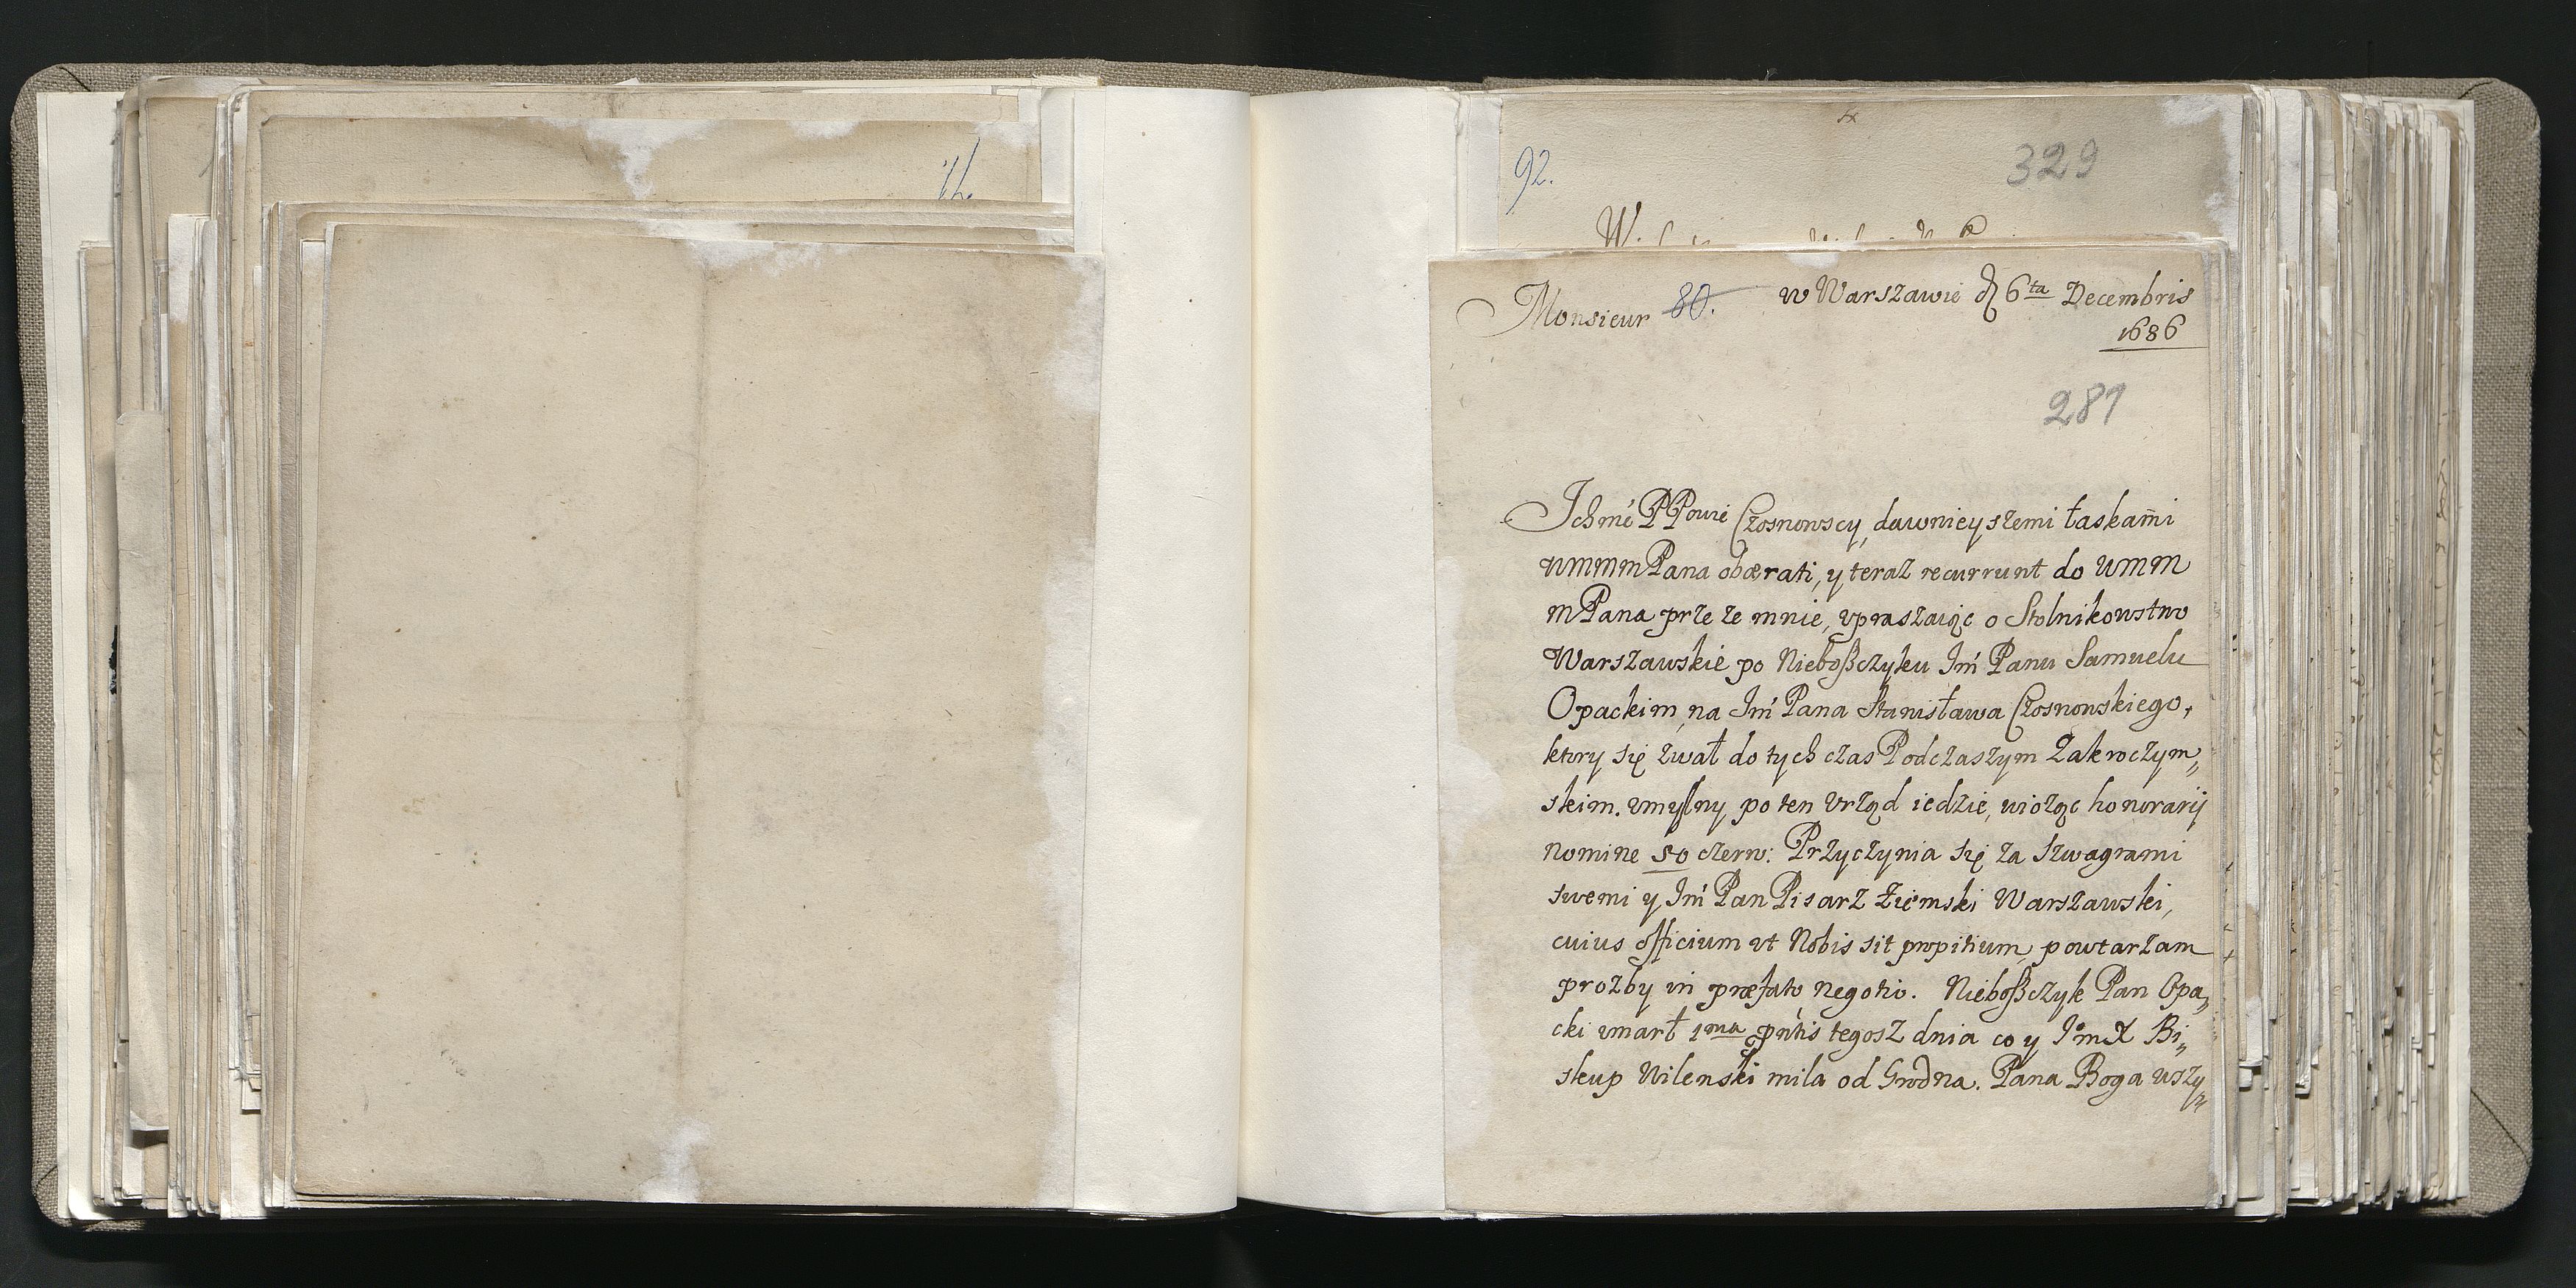 92.
329
Monsieur 80. w Warszawie d 6ta Decembris
1686
281
Ichmć PPowie Czosnowscy, dawnieyszemi łaskami
WMMMPana obærati, y teraz recurrunt do WMM
MPana prze ze mnie, vpraszaiąc o Stolnikowstwo
Warszawskie po Nieboßczyku Im Panu Samuelu
Opackim, na Im Pana Stanisława Czosnowskiego,
ktory się zwał do tych czas Podczaszym Zakroczym„
skim. vmyslny po ten Vrząd iedzie, wioząc honorarij
nomine 50 czerw: Przyczynia się za Szwagrami
swemi y Im Pan Pisarz Ziemski Warszawski,
cuius officium vt Nobis sit propitium, powtarzam
prozby in præfato negotio. Nieboßczyk Pan Opa„
cki vmarł 1ma pntis tegosz dnia co y Im X Bi„
skup Wilenski mila od Grodna. Pana Boga wszy„